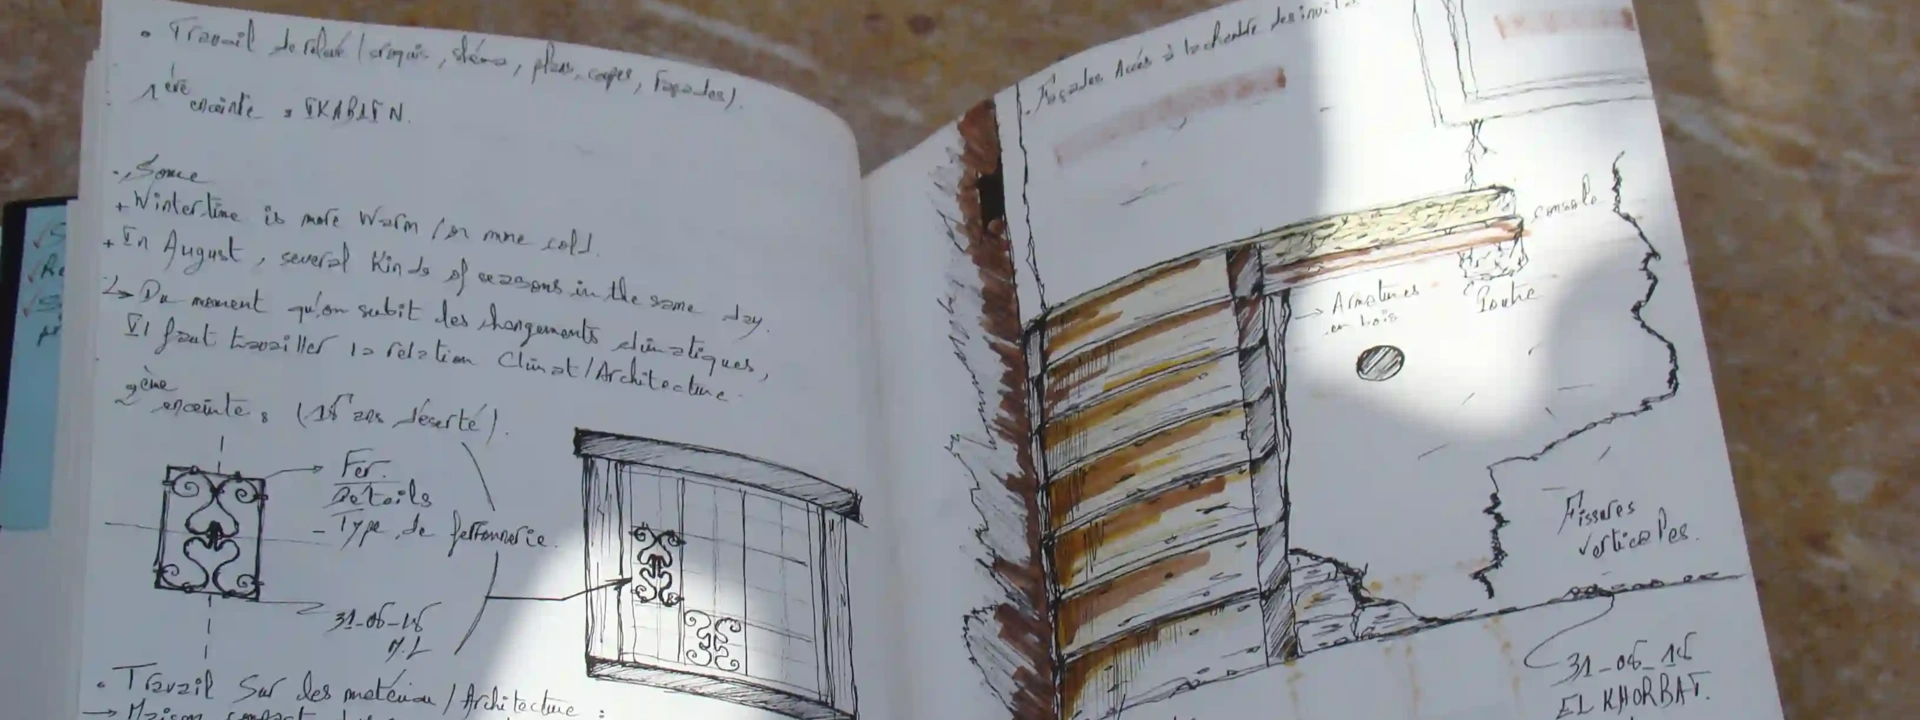 • Travail de relevé (croquis, schéma, plans, coupes, Façades).
1ère enceinte : IKABLIN.
. Some
+ Wintertime is more warm / or more cold.
+ In August, several kinds of seasons in the same day.
↳ Du moment qu'on subit des changements climatiques,
Il faut travailler la relation Climat/Architecture.
2ème enceinte : (15 ans déserté).
Fer.
Détails
- Type de ferronnerie.
31-05-15
M.L
• Travail sur les matériau / Architecture :
→ Maison
Façades Accès à la chambre des invités
console
→ Armatures
en bois
Poutre
Fissures
verticales.
31-05-15
EL KHORBAT.